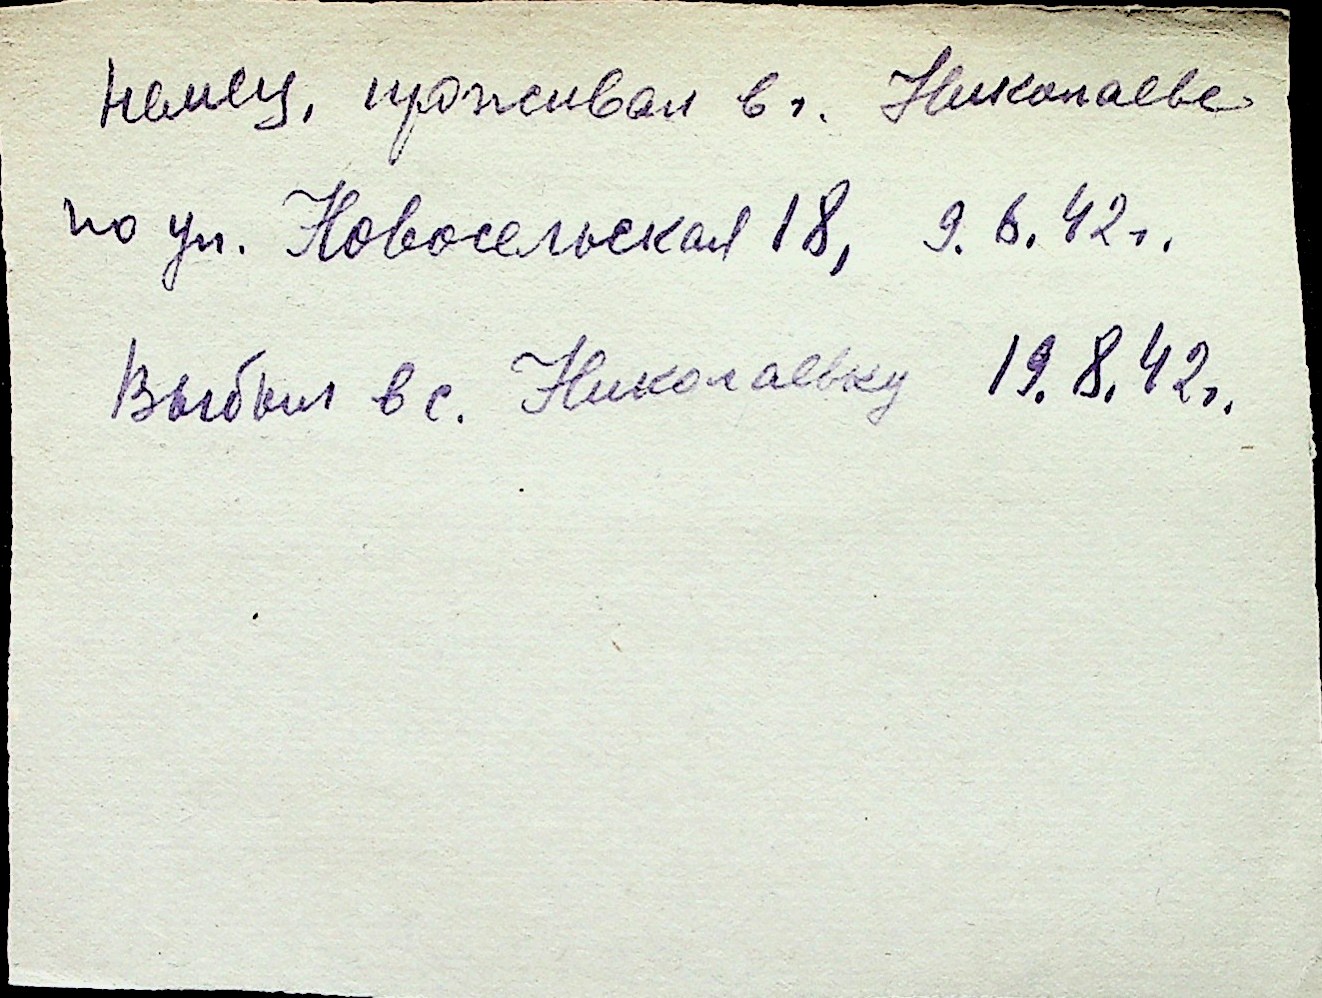 Немец, проживал в г. Николаеве
по ул. Новосельская 18, 9.6.42г.
Выбыл в с. Николаевку 19.8.42г.